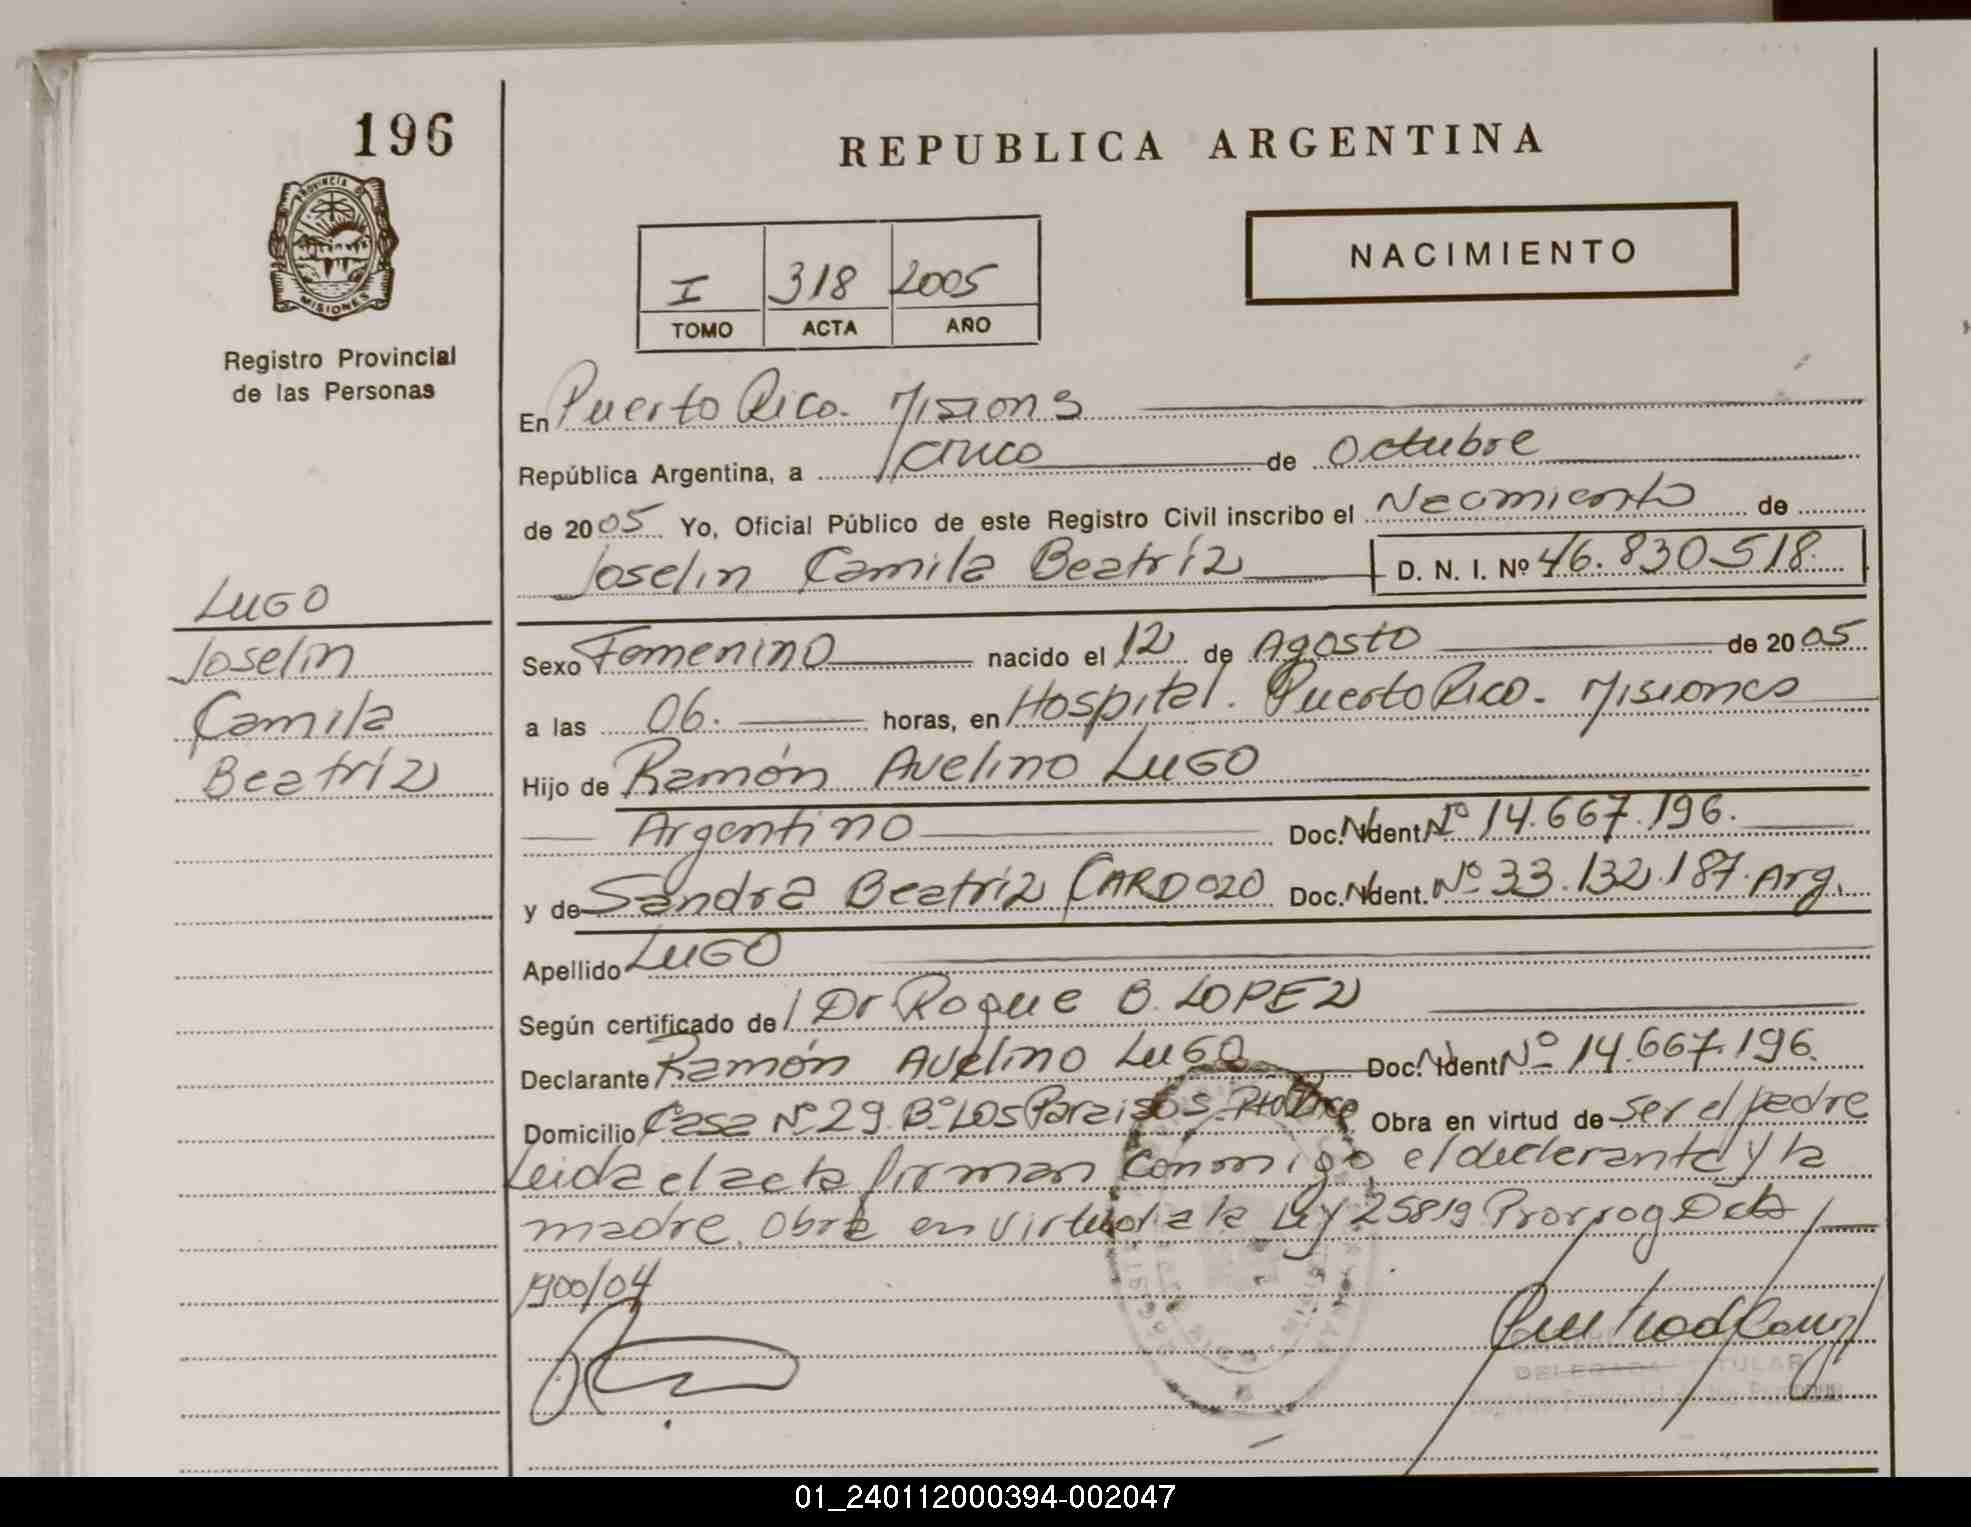 196
REPUBLICA ARGENTINA
PROVINCIA DE
MISIONES
NACIMIENTO
I 318 2005
TOMO ACTA AÑO
Registro Provincial
de las Personas
En Puerto Rico. Misions
República Argentina, a cinco de octubre
de 2005 Yo, Oficial Público de este Registro Civil inscribo el Nacimiento de
Joselin Camila Beatríz D. N. I. Nº 46.830.518
LUGO
Joselin
Camila
Beatríz
Sexo Femenino nacido el 12 de Agosto de 2005
a las 06. horas, en Hospital. Puerto Rico. Misiones
Hijo de Ramón Avelino LUGO
Argentino Doc. Ident. Nº 14.667.196.
y de Sandra Beatríz CARDOZO Doc. Ident. Nº 33.132.187. Arg.
Apellido LUGO
Según certificado de Dr Roque B. LOPEZ
Declarante Ramón Avelino LUGO Doc. Ident. Nº 14.667.196.
Domicilio Casa Nº 29. Bº Los Paraisos. Pto Rico Obra en virtud de ser el padre
Leida el acta firman conmigo el declarante y la
madre. Obra en virtud a la Ley 25819 Prorrog Dcto
1900/04
DELEGADA TITULAR
01_240112000394-002047